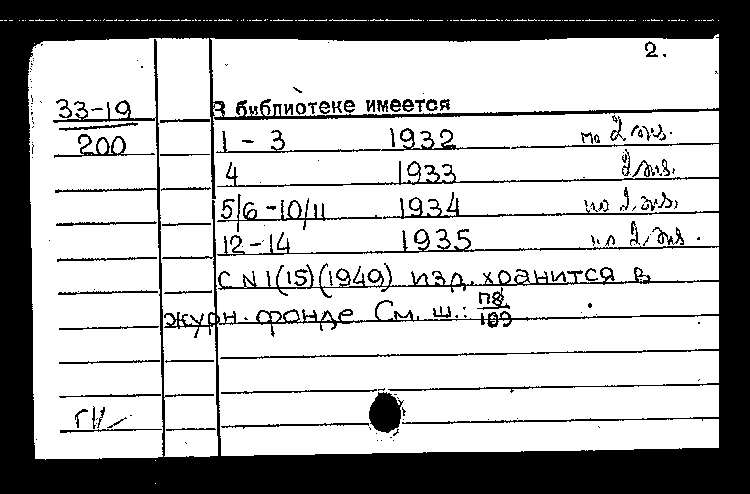 2.
33-19 В библиотеке имеется
200 1 - 3 1932 по 2 экз.
4 1933 2 экз.
5/6 -10/11 1934 по 2 экз.
12-14 1935 по 2 экз.
С N 1(15)(1949) изд. хранится в
журн. фонде См. ш.: П8/109